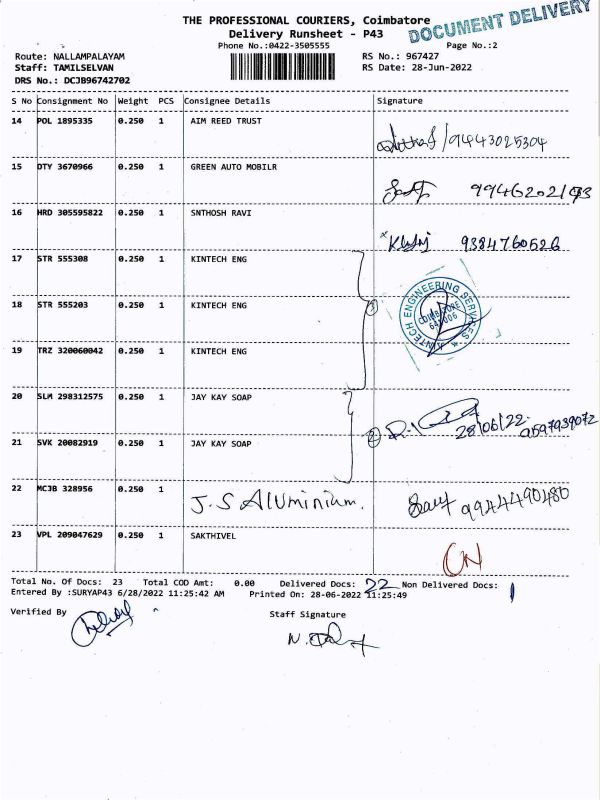 DOCUMENT DELIVERY
THE PROFESSIONAL COURIERS, Coimbatore
Delivery Runsheet - P43
Phone No.:0422-3505555
Page No.:2
Route: NALLAMPALAYAM
RS No.: 967427
Staff: TAMILSELVAN
RS Date: 28-Jun-2022
DRS No.: DCJB96742702
S No Consignment No Weight PCS Consignee Details Signature
14 POL 1895335 0.250 1 AIM REED TRUST
9443025304
15 DTY 3670966 0.250 1 GREEN AUTO MOBILR
16 HRD 305595822 0.250 1 SNTHOSH RAVI
9384760526
17 STR 555308 0.250 1 KINTECH ENG
18 STR 555203 0.250 1 KINTECH ENG
3
KINTECH ENGINEERING SERVICES
COIMBATORE
641 006
19 TRZ 320060042 0.250 1 KINTECH ENG
20 SLM 298312575 0.250 1 JAY KAY SOAP
2
28/06/22
9597939072
21 SVK 20082919 0.250 1 JAY KAY SOAP
22 MCJB 328956 0.250 1 J.S Aluminium.
9944490480
23 VPL 209047629 0.250 1 SAKTHIVEL
CN
Total No. Of Docs: 23 Total COD Amt: 0.00 Delivered Docs: 22 Non Delivered Docs: 1
Entered By :SURYAP43 6/28/2022 11:25:42 AM Printed On: 28-06-2022 11:25:49
Verified By
Staff Signature